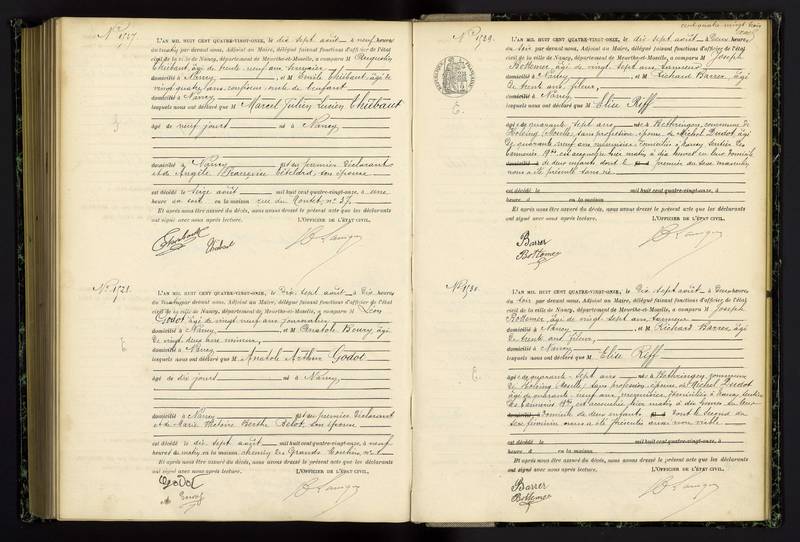 N° 1727.
L'AN MIL HUIT CENT QUATRE-VINGT-ONZE, le dix sept août à neuf heures
du matin par devant nous, Adjoint au Maire, délégué faisant fonctions d'officier de l'état
civil de la ville de Nancy, département de Meurthe-et-Moselle, a comparu M Augustin
Thiébaut, âgé de trente neuf ans
domicilié à Nancy, et M Emile Thiébaut, âgé de
vingt quatre ans, oncle de l'enfant
domicilié à Nancy
lesquels nous ont déclaré que Marcel Julien Lucien Thiébaut
âgé de neuf jours né à Nancy,
domicilié à Nancy est du premier déclarant
et de Angèle son épouse
est décédé le seize août mil huit cent quatre-vingt-onze, à une
heure du soir en la maison rue du Montet, n° 37.
Et après nous être assuré du décès, nous avons dressé le présent acte que les déclarants
ont signé avec nous après lecture. L'OFFICIER DE L'ÉTAT CIVIL,
N° 1728.
L'AN MIL HUIT CENT QUATRE-VINGT-ONZE, le dix sept août à dix heures
du matin par devant nous, Adjoint au Maire, délégué faisant fonctions d'officier de l'état
civil de la ville de Nancy, département de Meurthe-et-Moselle, a comparu M Léon
Godot âgé de vingt neuf ans journalier
domicilié à Nancy, et M Anatole
de vingt deux ans mineur,
domicilié à Nancy
lesquels nous ont déclaré que M Anatole Arthur Godot
âgé de dix jours né à Nancy,
domicilié à Nancy est du premier déclarant
et de Marie Victoire Berthe son épouse
est décédé le dix sept août mil huit cent quatre-vingt-onze, à neuf
heures du matin en la maison chemin des Grands Moulins, n° 1
Et après nous être assuré du décès, nous avons dressé le présent acte que les déclarants
ont signé avec nous après lecture. L'OFFICIER DE L'ÉTAT CIVIL,
Godot
cent quatre vingt trois
N° 1729.
L'AN MIL HUIT CENT QUATRE-VINGT-ONZE, le dix sept août à deux heures
du soir par devant nous, Adjoint au Maire, délégué faisant fonctions d'officier de l'état
civil de la ville de Nancy, département de Meurthe-et-Moselle, a comparu M Joseph
Bottemer, âgé de vingt sept ans
domicilié à Nancy, et M Richard Barrer, âgé
de trente ans, fileur,
domicilié à Nancy
lesquels nous ont déclaré que M Elise Reff
âgée de quarante sept ans née à Bettringen, commune de
Holving (Moselle) sans profession, épouse de Michel Dudot âgé
de quarante neuf ans menuisier, domiciliés à Nancy, sentier des
est accouchée hier matin à dix heures en leur domicile
domicilié à de deux enfants dont le premier du sexe masculin
nous a été présenté sans vie
est décédé le mil huit cent quatre-vingt-onze, à
heure d en la maison
Et après nous être assuré du décès, nous avons dressé le présent acte que les déclarants
ont signé avec nous après lecture. L'OFFICIER DE L'ÉTAT CIVIL,
Barrer
Bottemer
N° 1730.
L'AN MIL HUIT CENT QUATRE-VINGT-ONZE, le dix sept août à deux heures
du soir par devant nous, Adjoint au Maire, délégué faisant fonctions d'officier de l'état
civil de la ville de Nancy, département de Meurthe-et-Moselle, a comparu M Joseph
Bottemer, âgé de vingt sept ans
domicilié à Nancy, et M Richard Barrer, âgé
de trente ans, fileur,
domicilié à Nancy
lesquels nous ont déclaré que M Elise Reff
âgée de quarante sept ans née à Bettringen, commune
de Holving (Moselle) sans profession, épouse de Michel Dudot
âgé de quarante neuf ans, menuisier, domiciliés à Nancy, sentier
est accouchée hier matin à dix heures en leur
domicilié à domicile de deux enfants dont le second du
sexe féminin nous a été présenté aussi non viable
est décédé le mil huit cent quatre-vingt-onze, à
heure d en la maison
Et après nous être assuré du décès, nous avons dressé le présent acte que les déclarants
ont signé avec nous après lecture. L'OFFICIER DE L'ÉTAT CIVIL,
Barrer
Bottemer